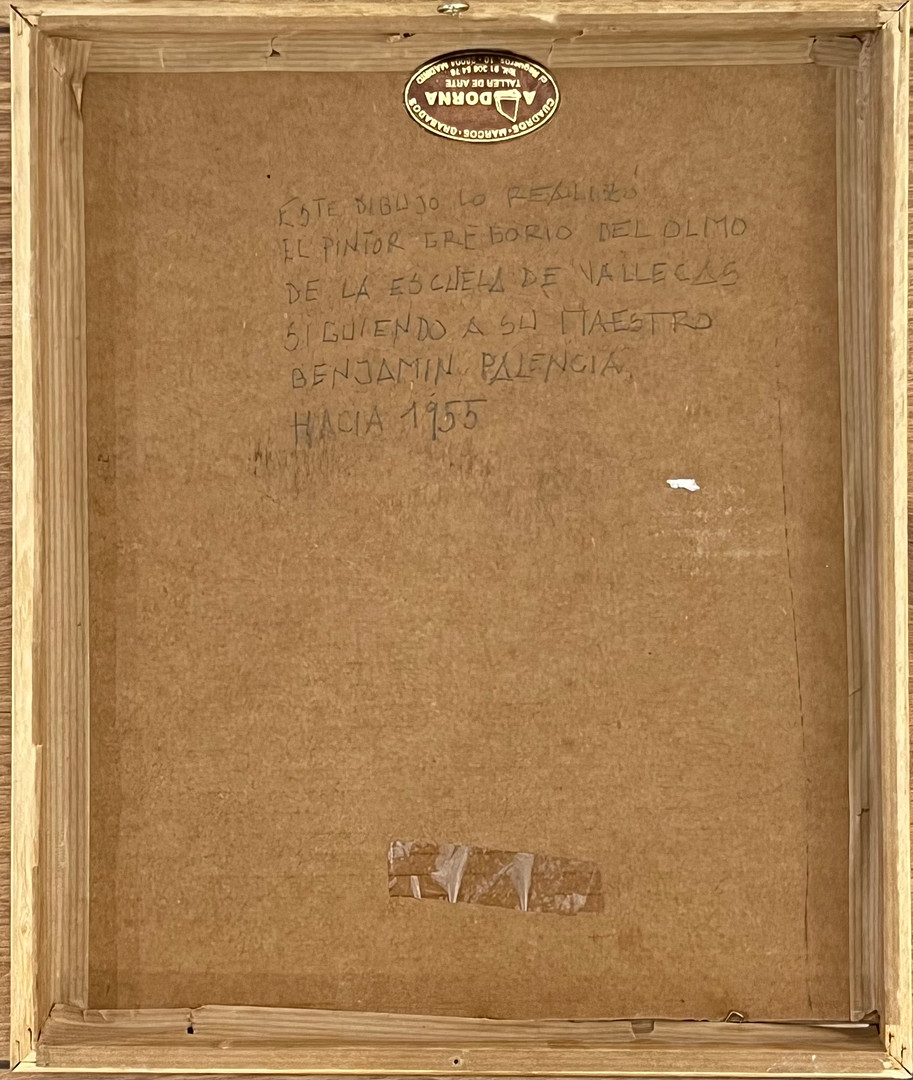 CUADROS · MARCOS · GRABADOS
ADORNA
TALLER DE ARTE
MADRID
ESTE DIBUJO LO REALIZÓ
EL PINTOR GREGORIO DEL OLMO
DE LA ESCUELA DE VALLECAS
SIGUIENDO A SU MAESTRO
BENJAMIN PALENCIA.
HACIA 1955